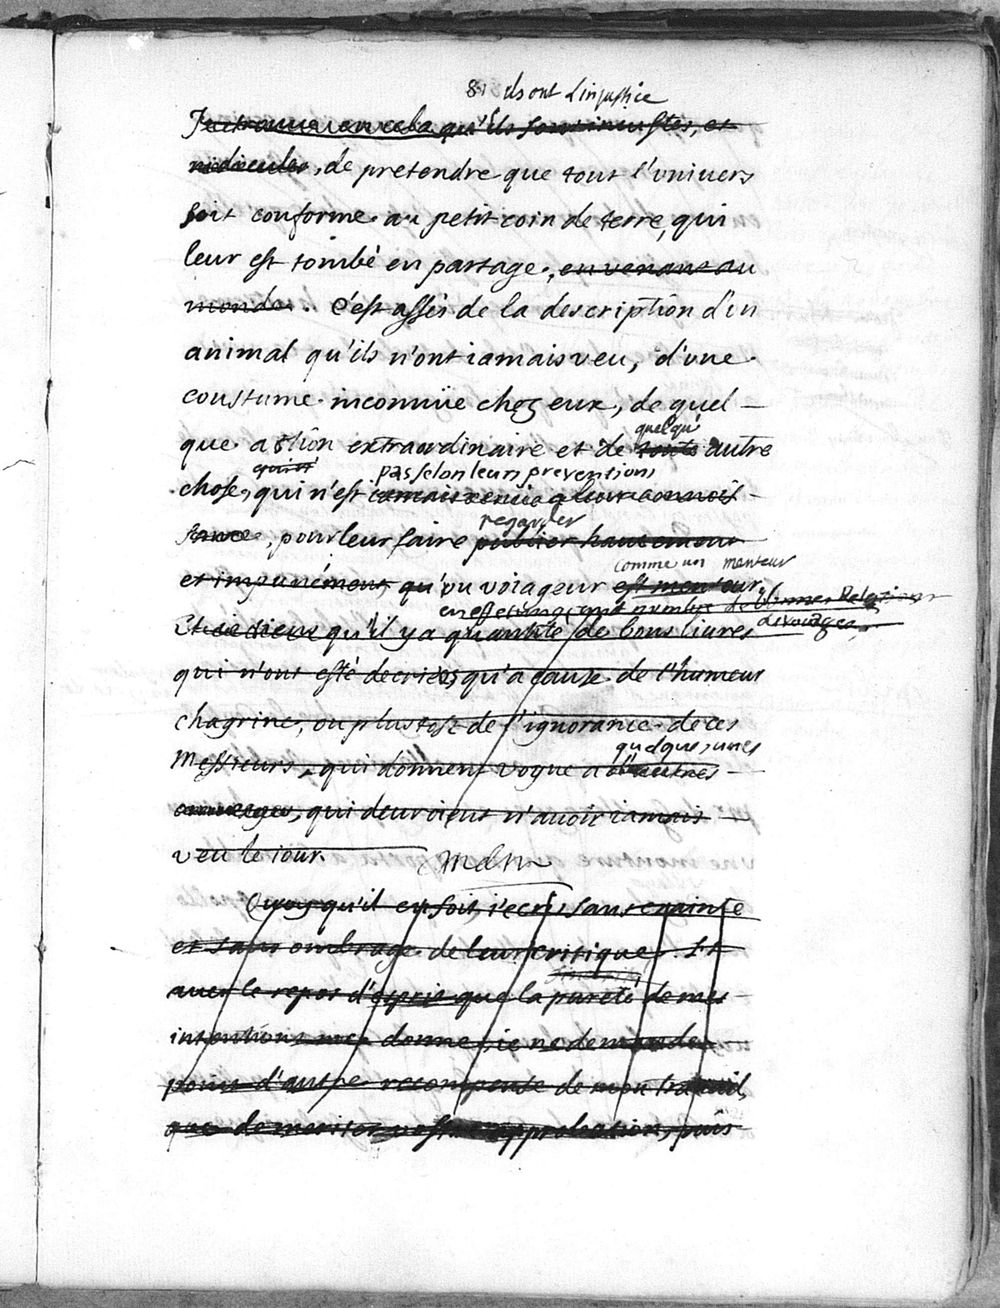 81 ils ont l'injustice
Je trouve en cela qu'ils sont iniustes, et
ridicules, de pretendre que tout l'vniuers
soit conforme au petit coin de terre, qui
leur est tombé en partage, en venant au
monde. C'est assés de la description d'vn
animal qu'ils n'ont iamais veu, d'vne
coustume inconnüe chez eux, de quel-
quelqu'
que action extraordinaire et de toute autre
pas selon leurs preventions
chose, qui n'est iamais venüe a leur connois-
regarder
sance, pour leur faire publier hautement
comme un menteur
et impunément, qu'vn voiageur est menteur,
en effet un grand nombre de bonnes Relations
de voiages,
qu'il y a quantité de bons liures
qui n'ont esté decriés qu'a cause de l'humeur
chagrine, ou plustost de l'ignorance de ces
quelques, unes
Messieurs, qui donnent vogue a d'autres
ouurages, qui deuroient n'auoir iamais
veu le iour.
Quoy qu'il en soit, i'ecris sans crainte
et sans ombrage de leur critique. Et
auec le repos d'esprit que la pureté de mes
intentions me donne, ie ne demande
point d'autre recompense de mon trauail,
que de meriter vostre approbation, puis